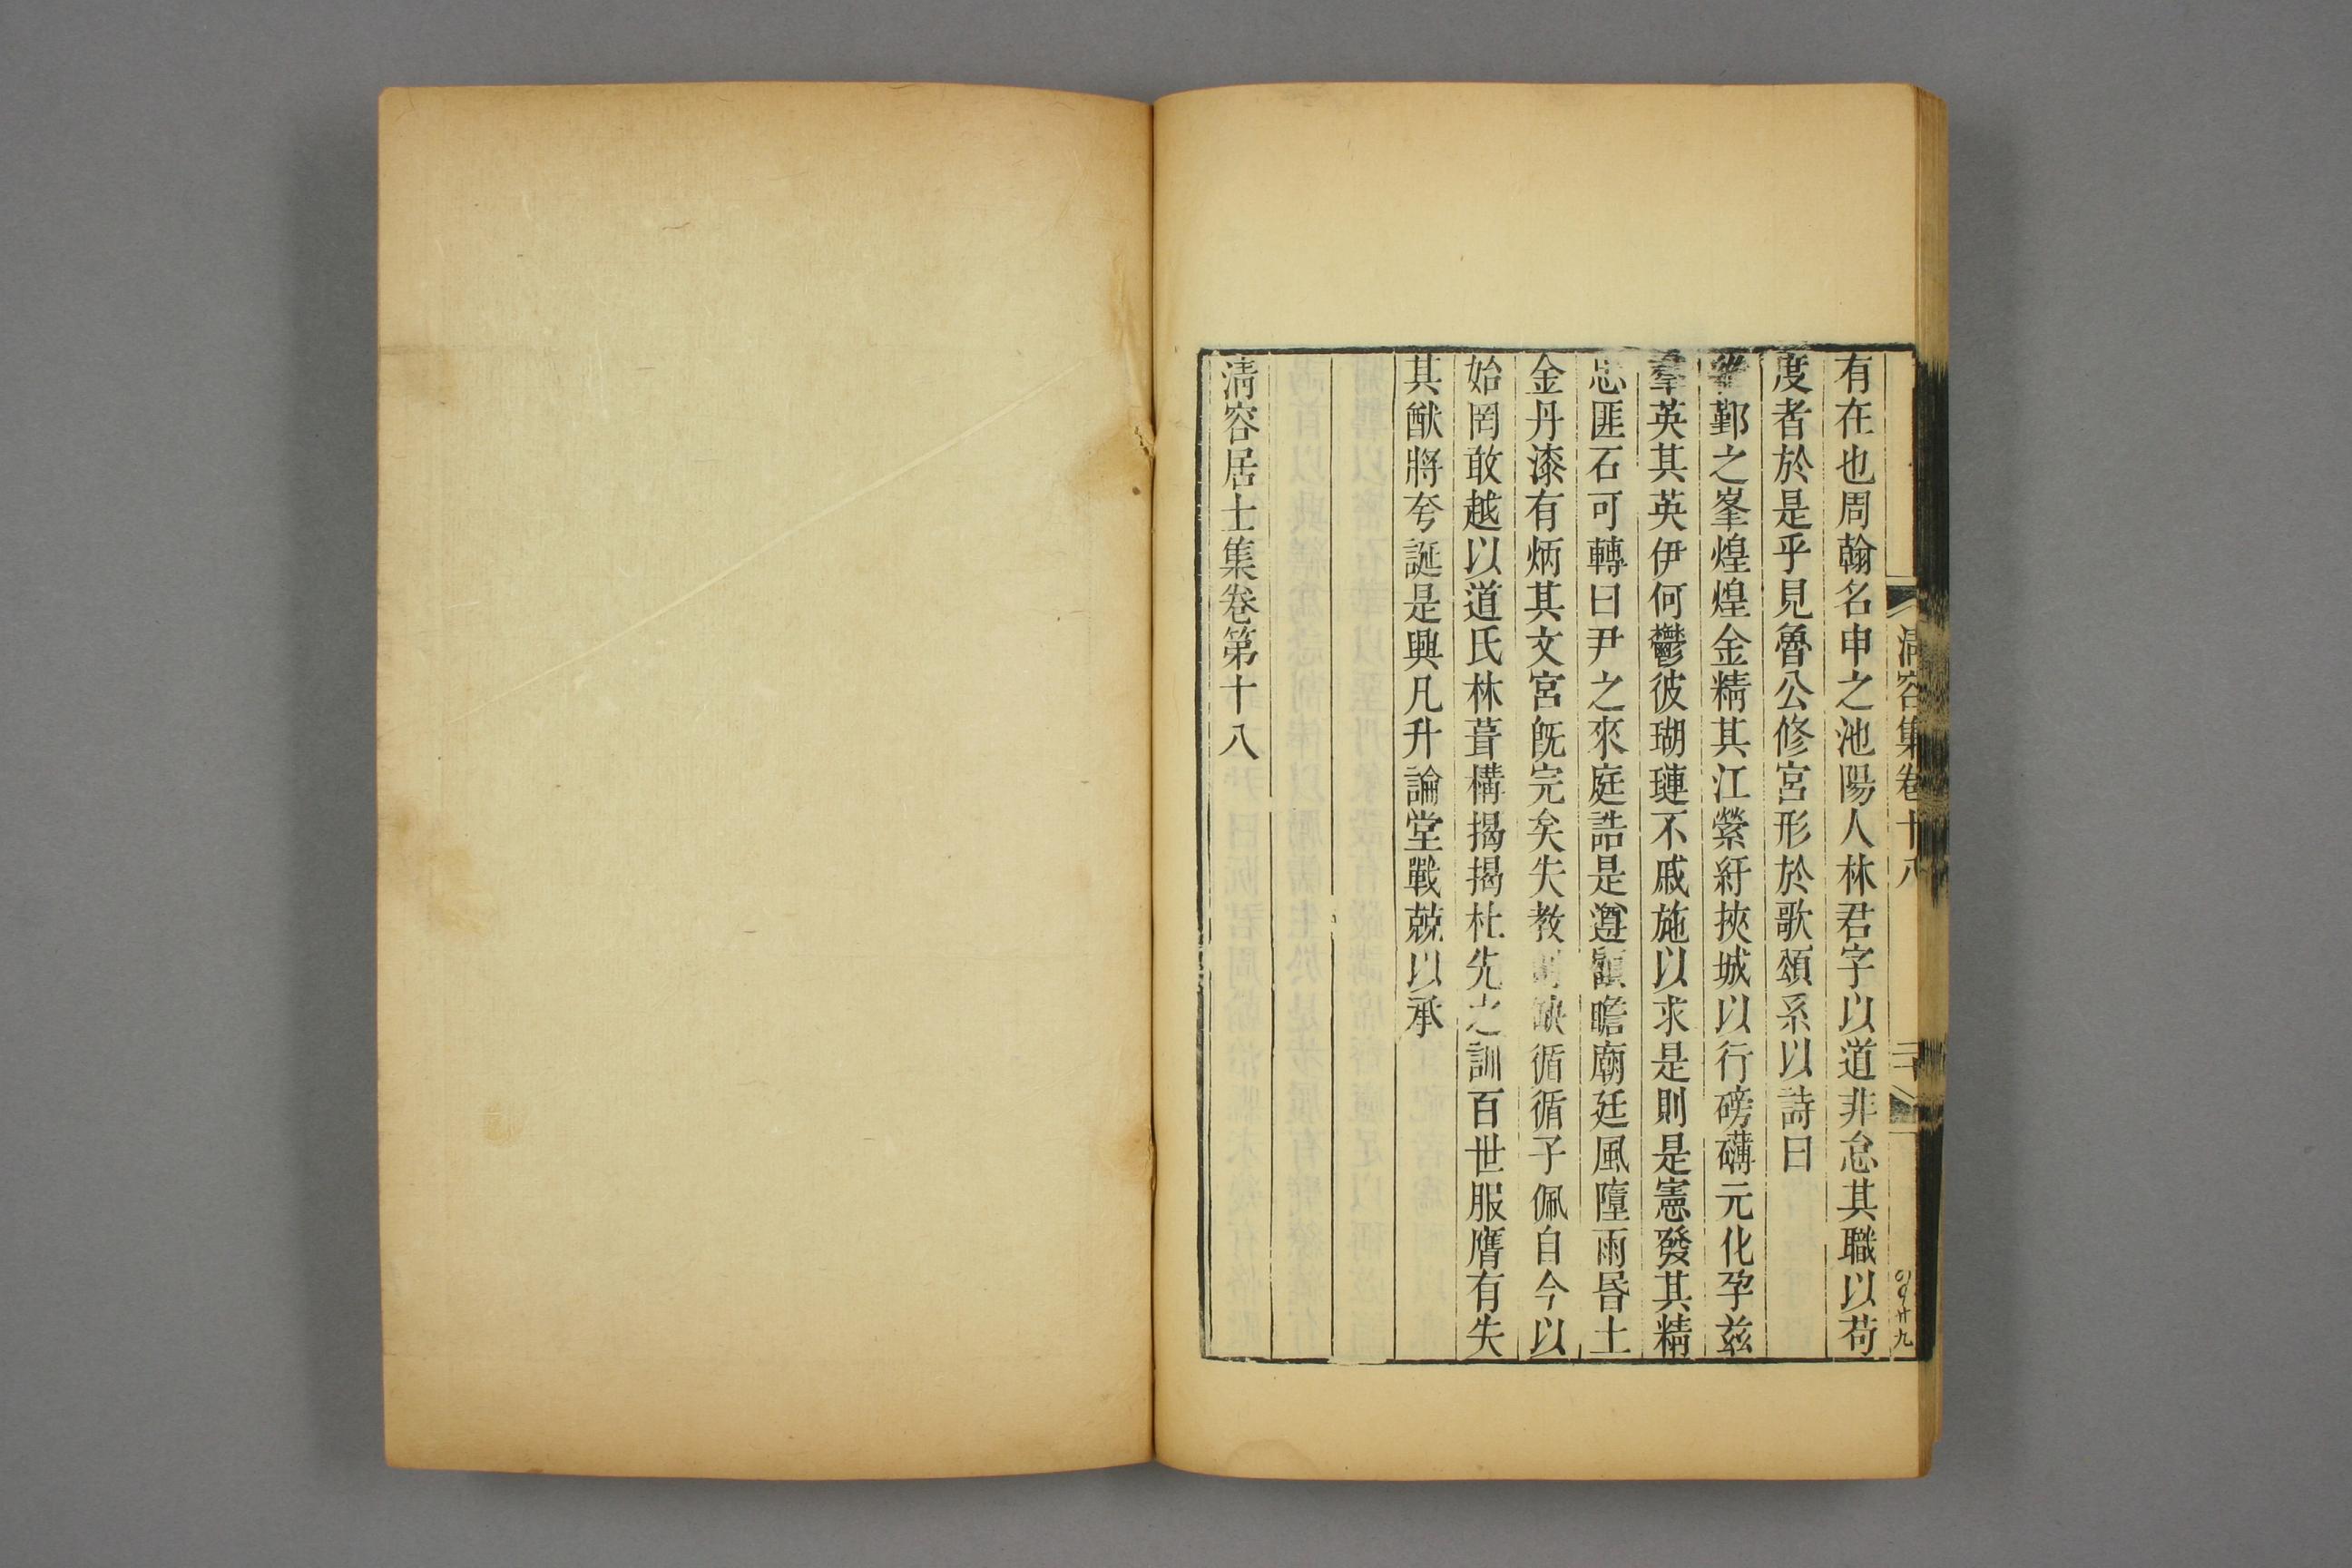 清容集卷十八
有在也周翰名申之池陽人林君字以道非怠其職以苟
度者於是乎見魯公修宮形於歌頌系以詩曰
鄞之峯煌煌金精其江縈紆挾城以行磅礴元化孕兹
羣英其英伊何鬱彼瑚璉不戚施以求是則是憲發其精
忠匪石可轉曰尹之來庭誥是遵顧瞻廟廷風墮雨昬土
金丹漆有炳其文宮旣完矣失教缺循循子佩自今以
始罔敢越以道氏林葺構揭揭杜先之訓百世服膺有失
其猷將夸誕是興凡升論堂戰兢以承
清容居士集卷第十八